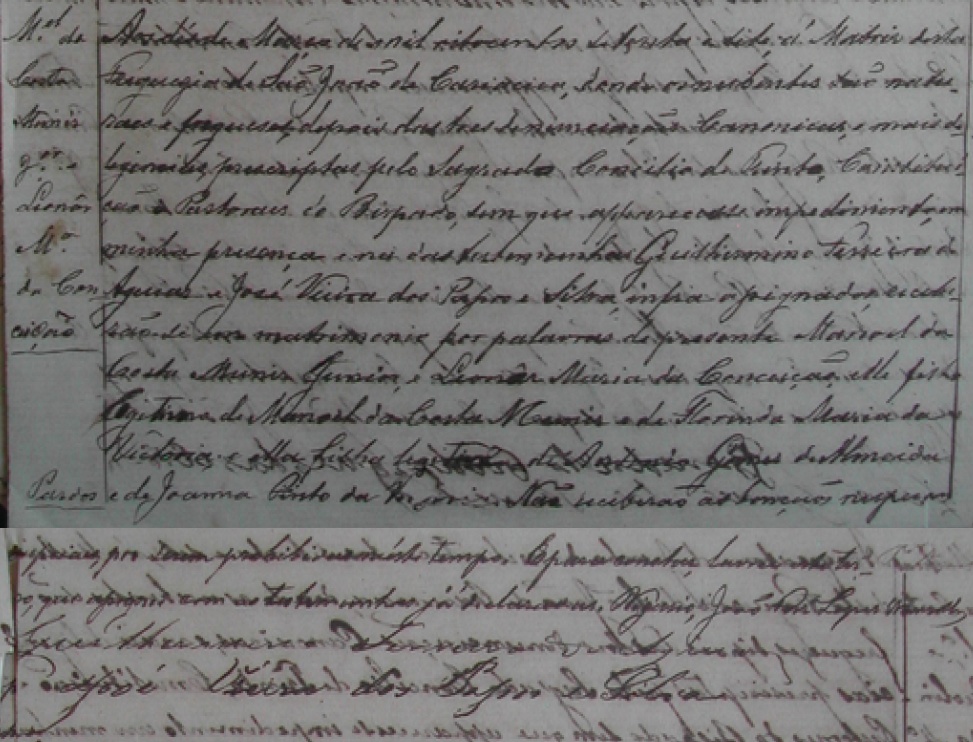 M.el da
Costa
Muniz
Jor. e
Lionôr
M.a
da Con-
ceição
Pardos
de Março de mil oitocentos e sete, á Matriz desta
Freguezia de São João de Cariacica, donde os nubentes são natu-
raes e freguezes, depois das tres denunciações Canonicas, e mais di-
ligencias prescriptas pelo Sagrado Concilio de Trento, Constitui-
ção e Pastoraes do Bispado, sem que apparecesse impedimento, em
minha presença e na das testemunhas Guilhermino Ferreira de
Aguiar e José Vieira dos Passos e Silva, infra assignados, recebê-
rão-se em matrimonio por palavras de presente Manoel da
Costa Muniz Junior, e Lionôr Maria da Conceição, elle filho
legitimo de Manoel da Costa Muniz e de Florinda Maria da
Victoria, e ella filha legitima de Antonio de Almeida
e de Joanna Pinto da Não receberão as bençãos nupciaes
nupciaes, por serem prohibidas neste tempo. E para constar lavrei este ter-
mo, que assigno com as testemunhas já declaradas. Vigario, João
Guilhermino Ferreira
José Vieira dos Passos e Silva